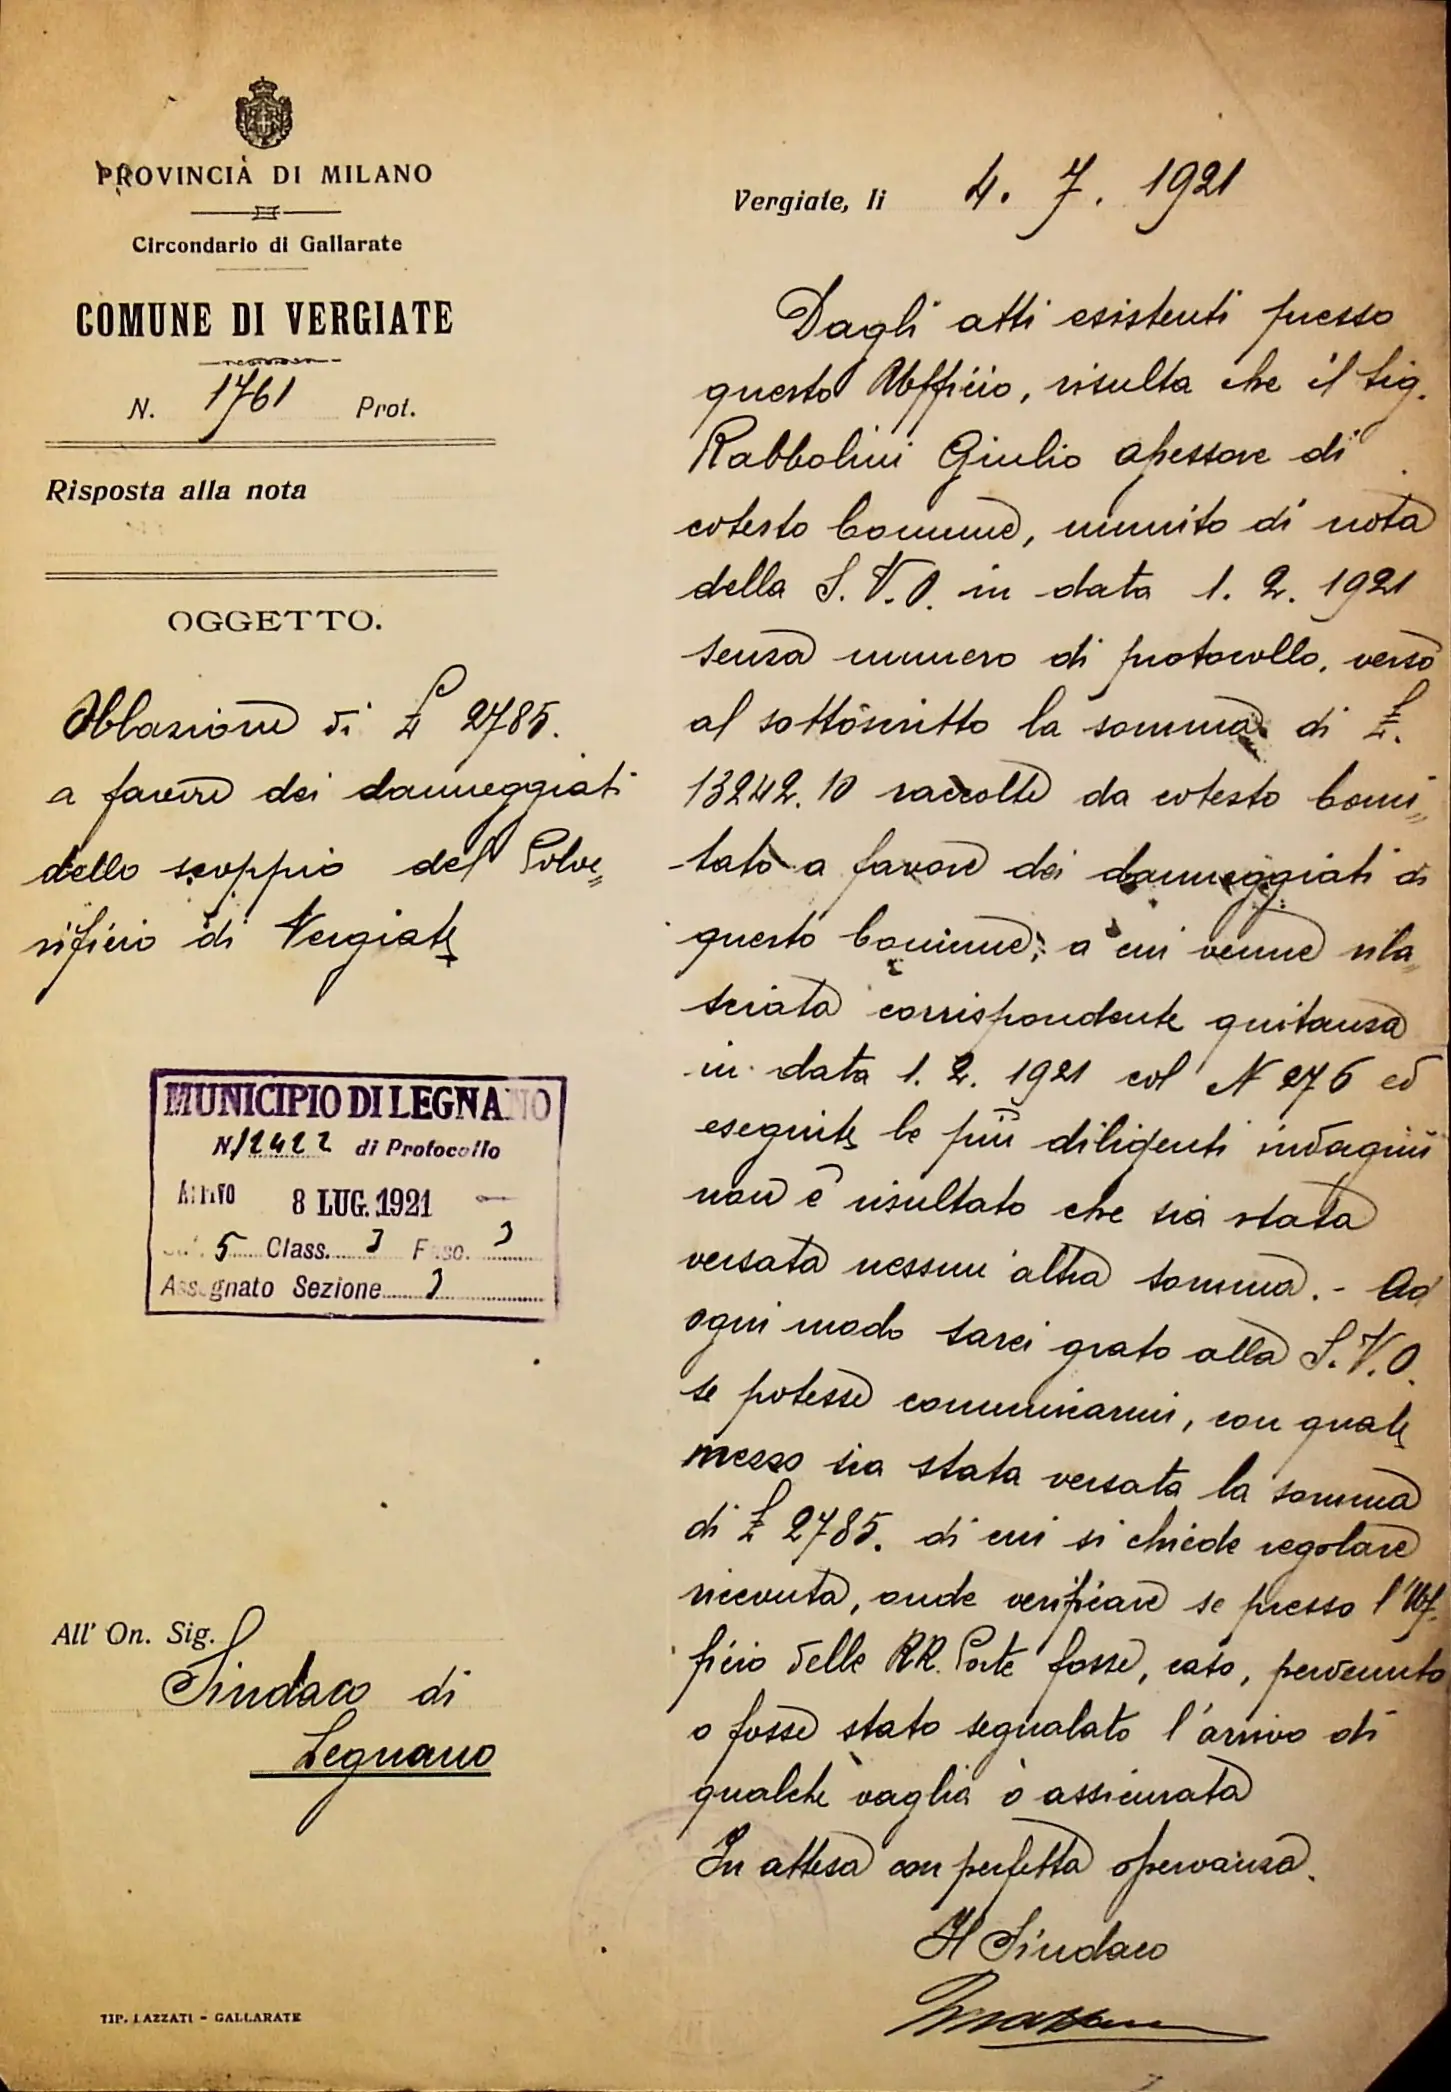 PROVINCIA DI MILANO
Circondario di Gallarate
COMUNE DI VERGIATE
N. 1761 Prot.
Risposta alla nota
OGGETTO.
Oblazione di £ 2785.
a favore dei danneggiati
dello scoppio del Polve„
rificio di Vergiate
MUNICIPIO DI LEGNANO
N. 12422 di Protocollo
Arrivo 8 LUG. 1921
5 Class. 3 Fasc. 3
Assegnato Sezione 3
All' On. Sig.
Sindaco di
Legnano
TIP. LAZZATI - GALLARATE
Vergiate, li 4. 7. 1921
Dagli atti esistenti presso
questo Ufficio, risulta che il Sig.
Rabbolini Giulio assessore di
cotesto Comune, munito di nota
della S. V. O. in data 1. 2. 1921
senza numero di protocollo, versò
al sottoscritto la somma di £.
13242.10 raccolte da cotesto Comi„
tato a favore dei danneggiati di
questo Comune; a cui venne rila„
sciata corrispondente quitanza
in data 1. 2. 1921 col N 276 ed
eseguite le più diligenti indagini
non è risultato che sia stata
versata nessun'altra somma. - Ad
ogni modo sarei grato alla S. V. O.
se potesse comunicarmi, con quale
mezzo sia stata versata la somma
di £ 2785. di cui si chiede regolare
ricevuta, onde verificare se presso l'Uf„
ficio delle RR. Poste fosse, caso, pervenuto
o fosse stato segnalato l'arrivo di
qualche vaglia o assicurata
In attesa con perfetta osservanza.
Il Sindaco